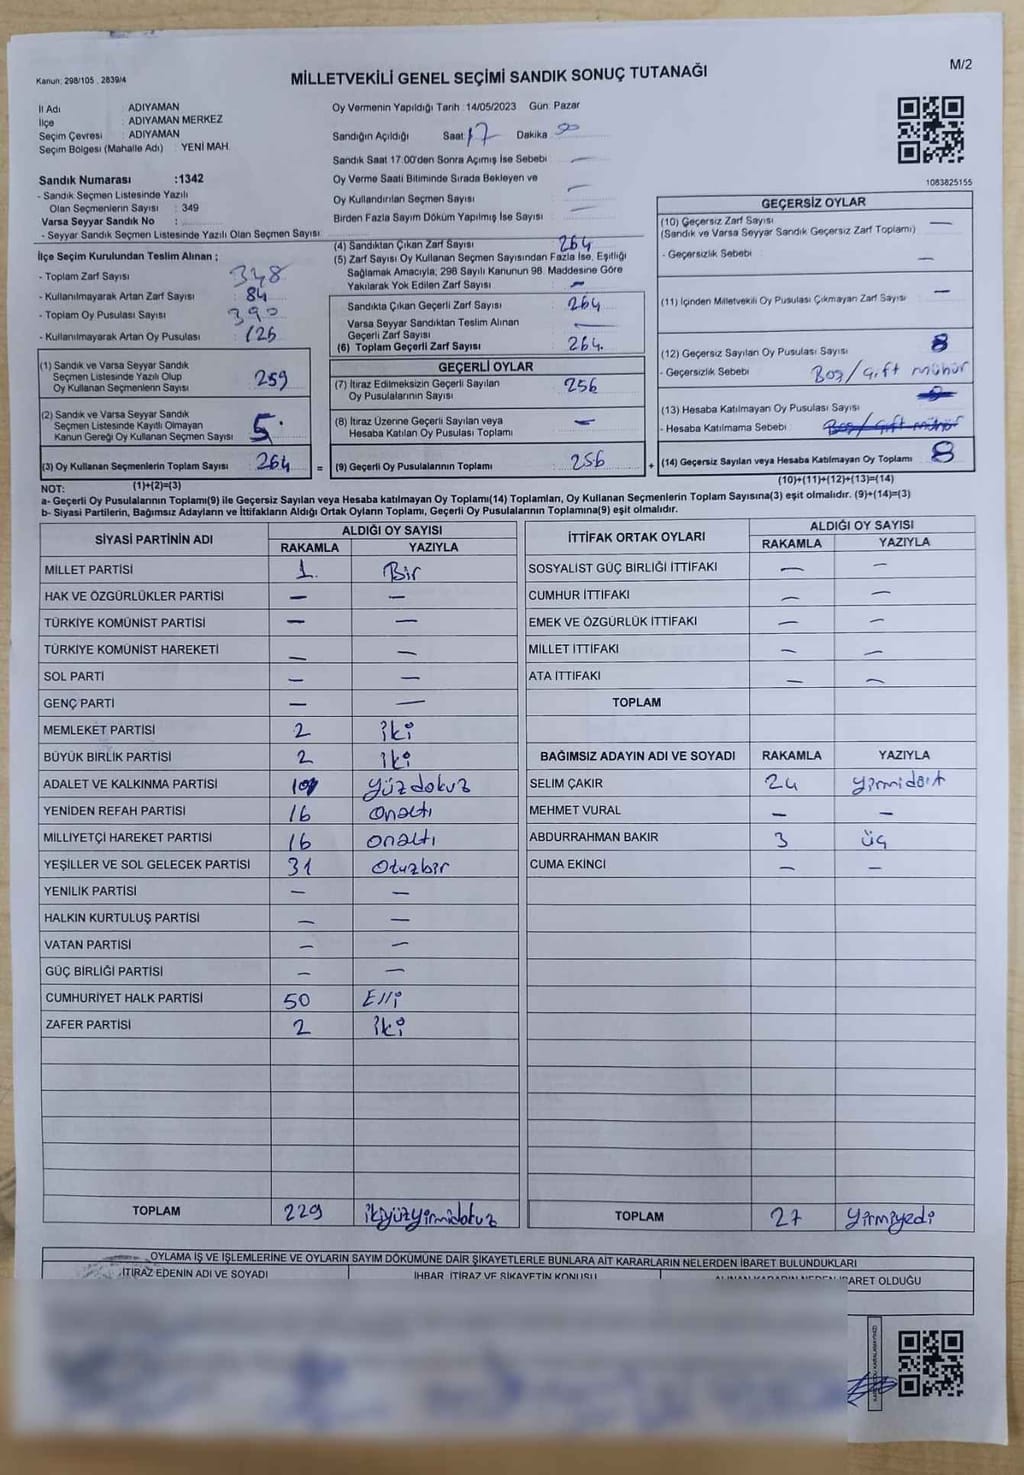 Kanun: 298/105 , 2839/4
MİLLETVEKİLİ GENEL SEÇİMİ SANDIK SONUÇ TUTANAĞI
M/2
İl Adı : ADIYAMAN
İlçe : ADIYAMAN MERKEZ
Seçim Çevresi : ADIYAMAN
Seçim Bölgesi (Mahalle Adı) : YENİ MAH.
Sandık Numarası :1342
- Sandık Seçmen Listesinde Yazılı
Olan Seçmenlerin Sayısı : 349
Varsa Seyyar Sandık No :
- Seyyar Sandık Seçmen Listesinde Yazılı Olan Seçmen Sayısı:
Oy Vermenin Yapıldığı Tarih :14/05/2023 Gün: Pazar
Sandığın Açıldığı Saat 17 Dakika 00
Sandık Saat 17:00'den Sonra Açımış İse Sebebi —
Oy Verme Saati Bitiminde Sırada Bekleyen ve
Oy Kullandırılan Seçmen Sayısı —
Birden Fazla Sayım Döküm Yapılmış İse Sayısı —
1083825155
İlçe Seçim Kurulundan Teslim Alınan ;
- Toplam Zarf Sayısı : 348
- Kullanılmayarak Artan Zarf Sayısı : 84
- Toplam Oy Pusulası Sayısı : 390
- Kullanılmayarak Artan Oy Pusulası : 126
(1) Sandık ve Varsa Seyyar Sandık
Seçmen Listesinde Yazılı Olup
Oy Kullanan Seçmenlerin Sayısı 259
(2) Sandık ve Varsa Seyyar Sandık
Seçmen Listesinde Kayıtlı Olmayan
Kanun Gereği Oy Kullanan Seçmen Sayısı 5
(3) Oy Kullanan Seçmenlerin Toplam Sayısı 264
(1)+(2)=(3)
(4) Sandıktan Çıkan Zarf Sayısı 264
(5) Zarf Sayısı Oy Kullanan Seçmen Sayısından Fazla İse, Eşitliği
Sağlamak Amacıyla; 298 Sayılı Kanunun 98. Maddesine Göre
Yakılarak Yok Edilen Zarf Sayısı —
Sandıkta Çıkan Geçerli Zarf Sayısı 264
Varsa Seyyar Sandıktan Teslim Alınan
Geçerli Zarf Sayısı —
(6) Toplam Geçerli Zarf Sayısı 264.
GEÇERLİ OYLAR
(7) İtiraz Edilmeksizin Geçerli Sayılan
Oy Pusulalarının Sayısı 256
(8) İtiraz Üzerine Geçerli Sayılan veya
Hesaba Katılan Oy Pusulası Toplamı —
= (9) Geçerli Oy Pusulalarının Toplamı 256
GEÇERSİZ OYLAR
(10) Geçersiz Zarf Sayısı —
(Sandık ve Varsa Seyyar Sandık Geçersiz Zarf Toplamı)
- Geçersizlik Sebebi —
(11) İçinden Milletvekili Oy Pusulası Çıkmayan Zarf Sayısı —
(12) Geçersiz Sayılan Oy Pusulası Sayısı 8
- Geçersizlik Sebebi Boş/Çift mühür
(13) Hesaba Katılmayan Oy Pusulası Sayısı
- Hesaba Katılmama Sebebi Boş/Çift mühür
+ (14) Geçersiz Sayılan veya Hesaba Katılmayan Oy Toplamı 8
(10)+(11)+(12)+(13)=(14)
NOT:
a- Geçerli Oy Pusulalarının Toplamı(9) ile Geçersiz Sayılan veya Hesaba katılmayan Oy Toplamı(14) Toplamları, Oy Kullanan Seçmenlerin Toplam Sayısına(3) eşit olmalıdır. (9)+(14)=(3)
b- Siyasi Partilerin, Bağımsız Adayların ve İttifakların Aldığı Ortak Oyların Toplamı, Geçerli Oy Pusulalarının Toplamına(9) eşit olmalıdır.
SİYASİ PARTİNİN ADI ALDIĞI OY SAYISI
RAKAMLA YAZIYLA
MİLLET PARTİSİ 1. Bir
HAK VE ÖZGÜRLÜKLER PARTİSİ — —
TÜRKİYE KOMÜNİST PARTİSİ — —
TÜRKİYE KOMÜNİST HAREKETİ — —
SOL PARTİ — —
GENÇ PARTİ — —
MEMLEKET PARTİSİ 2 iki
BÜYÜK BİRLİK PARTİSİ 2 iki
ADALET VE KALKINMA PARTİSİ 109 yüzdokuz
YENİDEN REFAH PARTİSİ 16 onaltı
MİLLİYETÇİ HAREKET PARTİSİ 16 onaltı
YEŞİLLER VE SOL GELECEK PARTİSİ 31 otuzbir
YENİLİK PARTİSİ — —
HALKIN KURTULUŞ PARTİSİ — —
VATAN PARTİSİ — —
GÜÇ BİRLİĞİ PARTİSİ — —
CUMHURİYET HALK PARTİSİ 50 Elli
ZAFER PARTİSİ 2 iki
TOPLAM 229 ikiyüzyirmidokuz
İTTİFAK ORTAK OYLARI ALDIĞI OY SAYISI
RAKAMLA YAZIYLA
SOSYALİST GÜÇ BİRLİĞİ İTTİFAKI — —
CUMHUR İTTİFAKI — —
EMEK VE ÖZGÜRLÜK İTTİFAKI — —
MİLLET İTTİFAKI — —
ATA İTTİFAKI — —
TOPLAM
BAĞIMSIZ ADAYIN ADI VE SOYADI RAKAMLA YAZIYLA
SELİM ÇAKIR 24 yirmidört
MEHMET VURAL — —
ABDURRAHMAN BAKIR 3 üç
CUMA EKİNCİ — —
TOPLAM 27 yirmiyedi
OYLAMA İŞ VE İŞLEMLERİNE VE OYLARIN SAYIM DÖKÜMÜNE DAİR ŞİKAYETLERLE BUNLARA AİT KARARLARIN NELERDEN İBARET BULUNDUKLARI
İTİRAZ EDENİN ADI VE SOYADI
İHBAR, İTİRAZ VE ŞİKAYETİN KONUSU
ALINAN KARARIN NEDEN İBARET OLDUĞU